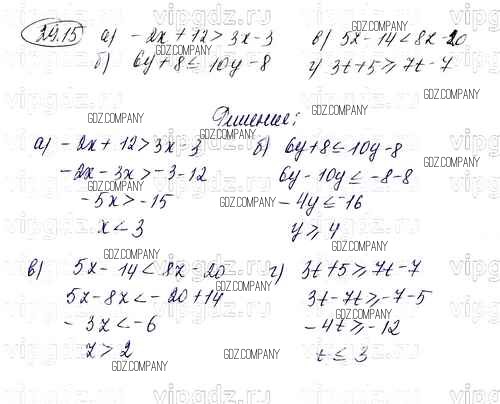 29.15 а) -2x+12>3x-3 в) 5x-14<8x-20
б) 6y+8≤10y-8 г) 3t+5≥7t-7
Решение:
а) -2x+12>3x-3 б) 6y+8≤10y-8
-2x-3x>-3-12 6y-10y≤-8-8
-5x>-15 -4y≤-16
x<3 y≥4
в) 5x-14<8x-20 г) 3t+5≥7t-7
5x-8x<-20+14 3t-7t≥-7-5
-3x<-6 -4t≥-12
x>2 t≤3